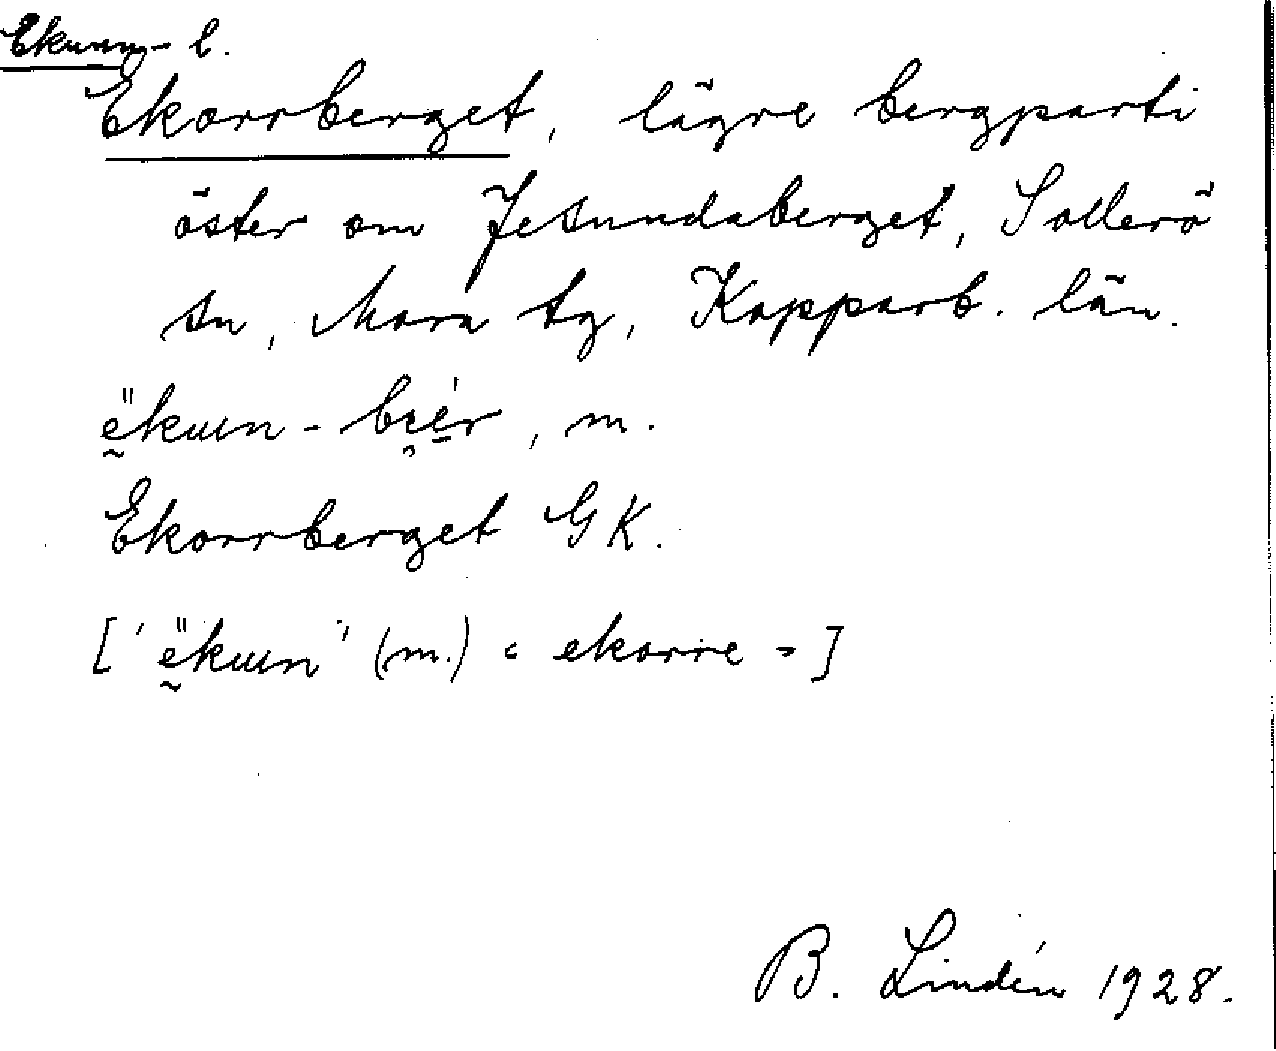 Ekunn- l.
Ekorrberget, lägre bergparti
öster om Jesundaberget, Sollerö
sn, Mora tg, Kopparb. län.
ḛ̈kuɯn - bɾér, m.
Ekorrberget GK.
['ḛ̈kuɯn' (m.) = ekorre = ]
B. Lindén 1928.